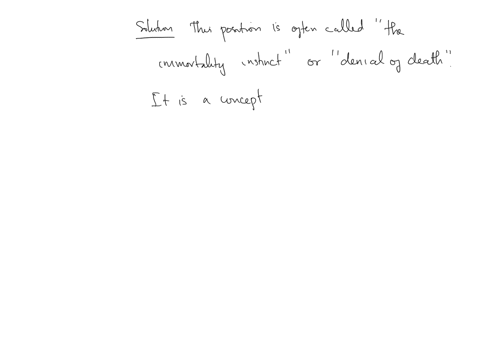 Solution This position is often called "the
immortality instinct" or "denial of death".
It is a concept